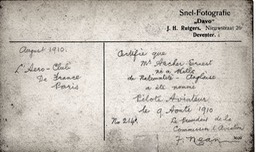 Snel-Fotografie
„Davo"
J. H. Rutgers, Nieuwstraat 26
Deventer.
August 1910.
L'Aero-Club
De France
Paris
Certifie que
Mr Archer Ernest
né à Melle
de Nationalité - Anglaise
a été nommé
Pilote Aviateur
le 9 Août 1910
No 214
Le President de la
Commission d'Aviation